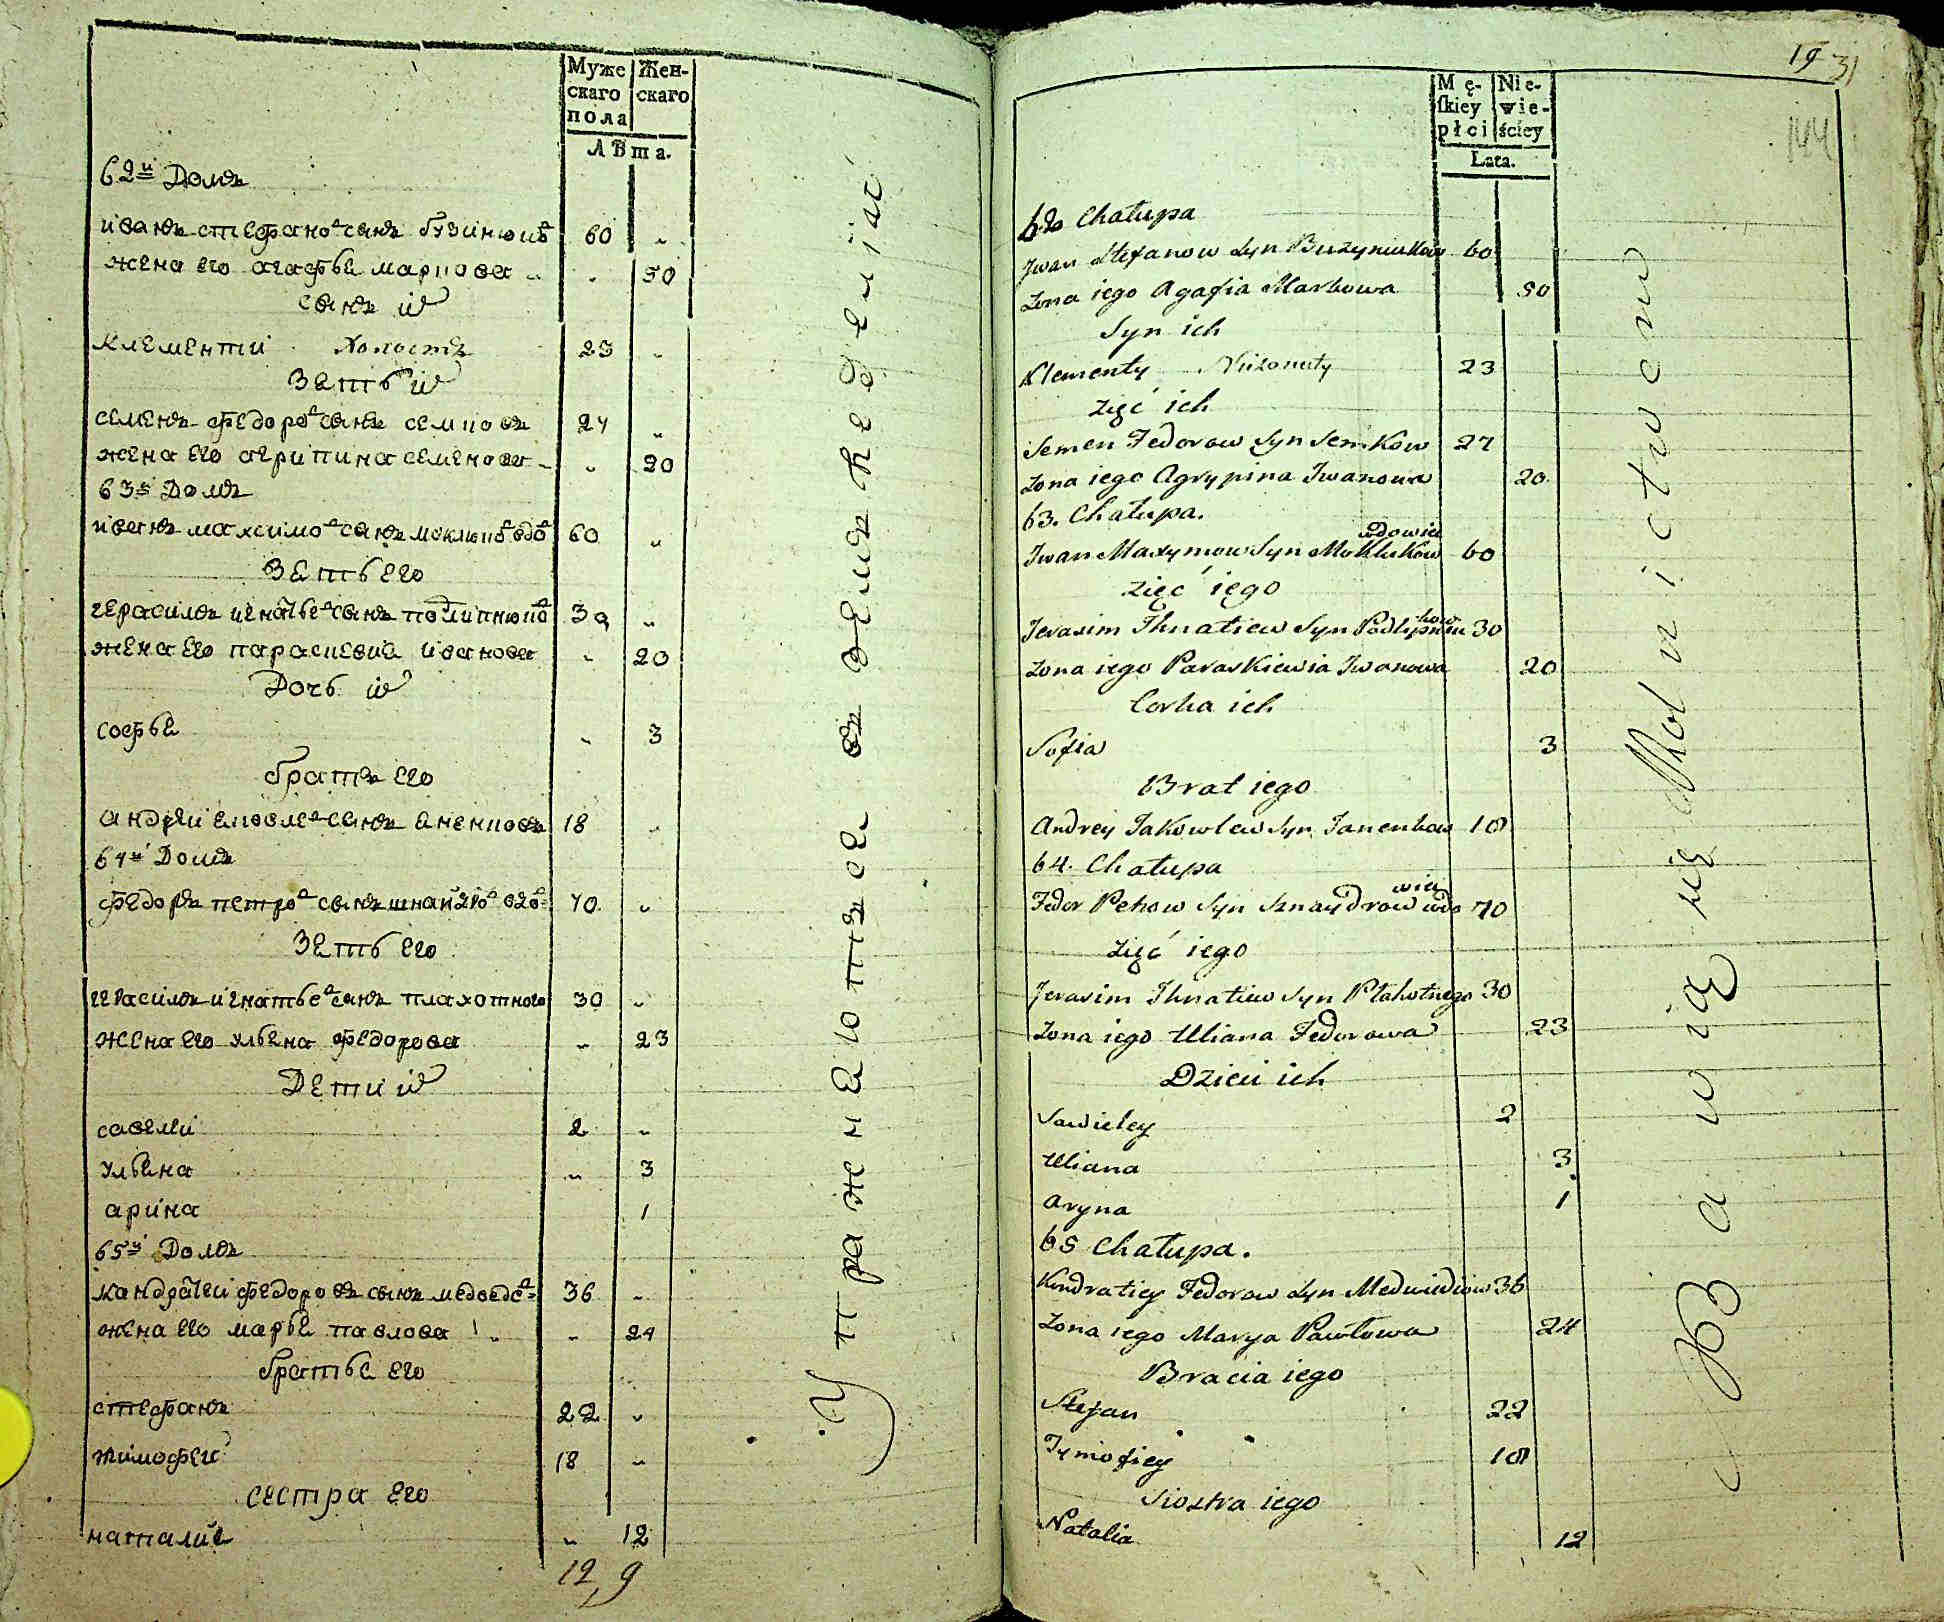 Муже
скаго
пола
Жен-
скаго
ЛѢта.
62й Домъ
иванъ стефановъ сынъ бузинюковъ 60 „
жена его агафья маркова „ 50
сынъ ихъ
клементий холостъ 23 „
зять ихъ
семенъ федоровъ сынъ семковъ 27 „
жена его агрипина семенова „ 20
63й Домъ
иванъ максимовъ сынъ моклюковъ вдовъ 60 „
зять его
герасимъ игнатьевъ сынъ подлипнюковъ 30 „
жена его параскевия иванова „ 20
Дочь ихъ
софья „ 3
братъ его
андрей яковлевъ сынъ яненковъ 18 „
64й Домъ
федоръ петровъ сынъ шнайдровъ вдовъ 70 „
зять его
герасимъ игнатьевъ сынъ плахотного 30 „
жена его ульяна федорова „ 23
Дети ихъ
савелий 2 „
ульяна „ 3
арина „ 1
65й Домъ
кандратей федоровъ сынъ медведевъ 36 „
жена его марья павлова „ 24
братья его
стефанъ 22 „
тимофей 18 „
сестра его
наталия „ 12
12, 9
Упражняются въ земледелии
19 31
144
Mę-
skiey
płci
Nie-
wie-
ściey
Lata.
62 Chałupa
Jwan Stefanow Syn Buzyniukow 60
Zona iego Agafia Markowa 50
Syn ich
Klementy Niżonaty 23
zięć ich
Semen Fedorow Syn Semkow 27
Zona iego Agrypina Jwanowa 20
63. Chałupa.
Jwan Maxymow Syn Moklukow wdowiec 60
zięć iego
Jerasim Ihnatiew Syn Podlipniukow 30
Zona iego Paraskiewia Jwanowa 20
Corka ich
Sofia 3
Brat iego
Andrey Jakowlew Syn Janenkow 18
64. Chałupa
Fedor Petrow Syn Sznaydrow wdowiec 70
zięć iego
Jerasim Ihnatiew Syn Płahotnego 30
Zona iego Uliana Fedorowa 23
Dzieci ich
Sawieley 2
Uliana 3
Aryna 1
65 Chałupa.
Kondratiey Fedorow Syn Medwiediow 36
Zona iego Marya Pawłowa 24
Bracia iego
Stefan 22
Tymofiey 18
Siostra iego
Natalia 12
Bawią się Rolnictwem